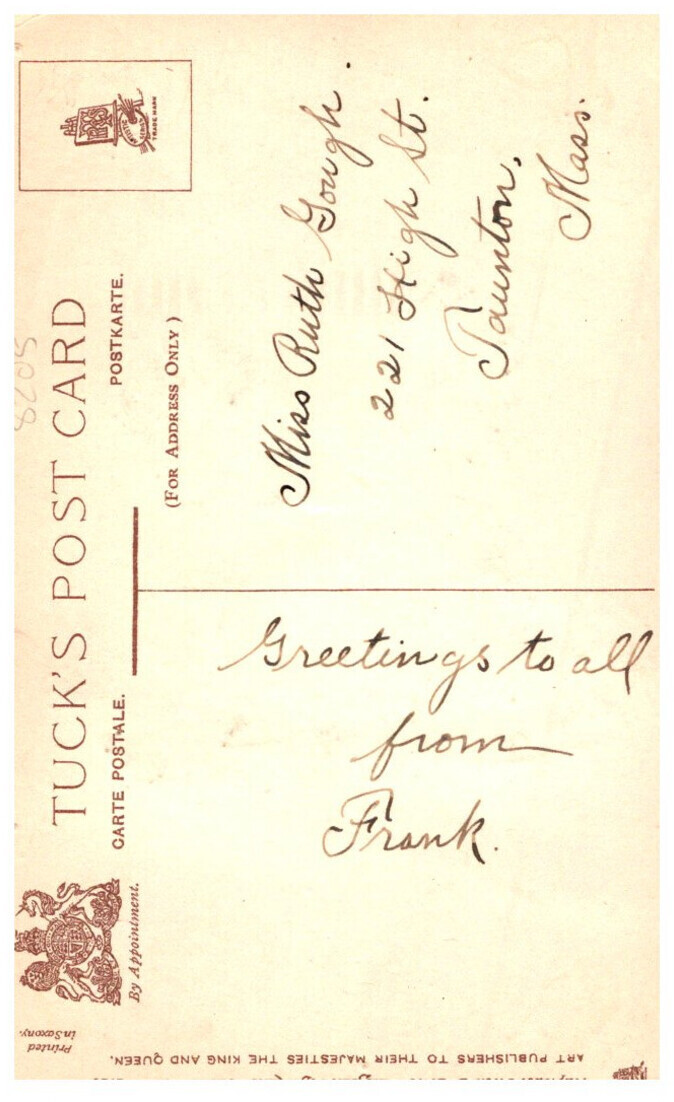 TUCK'S POST CARD
CARTE POSTALE.
POSTKARTE.
(FOR ADDRESS ONLY)
By Appointment.
TRADE MARK
Miss Ruth Gough.
221 High St.
Taunton,
Mass.
Greetings to all
from
Frank.
8205
Printed
in Saxony.
ART PUBLISHERS TO THEIR MAJESTIES THE KING AND QUEEN.